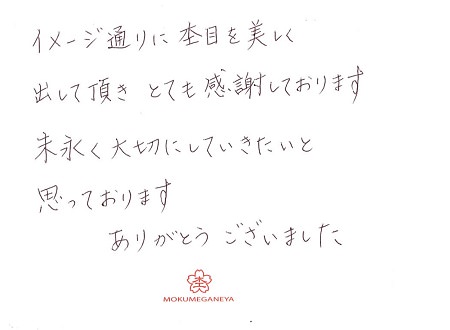 イメージ通りに 杢目を美しく
出して頂き とても感謝しております
末永く大切にしていきたいと
思っております
ありがとう ございました
MOKUMEGANEYA